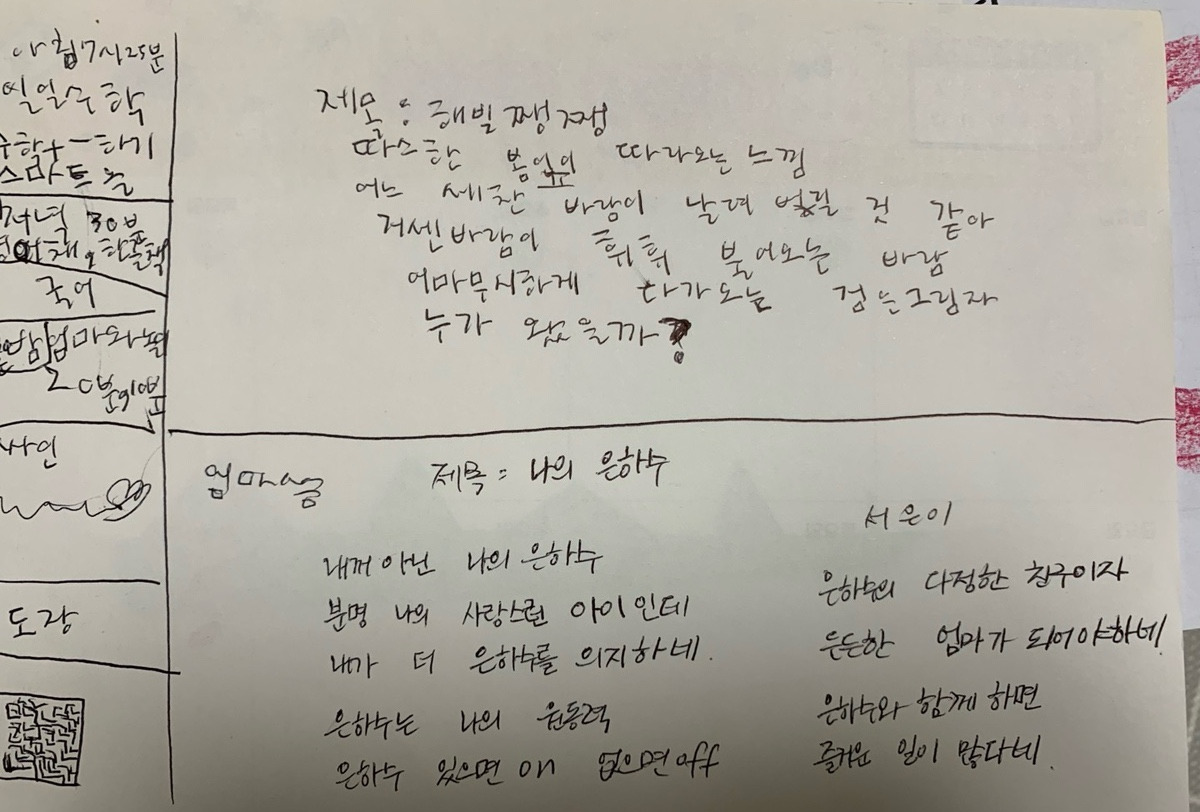 아침7시25분
일일수학
수학수-타기
스마트올
저녁 30분
국어
엄마와
20분
사인
도장
제모 : 해빌쨍쨍
따스한 봄 따라오는 느낌
어느 세찬 바람이 날려 것 같아
거센바람이 휘휘 불어오는 바람
어마무시하게 다가오늘 검은그림자
누가 왔을까?
엄마글
제목 = 나의 은하수
서은이
내꺼아닌 나의 은하수
분명 나의 사랑스런 아이인데
내가 더 은하수를 의지하네.
은하수는 나의 원동력
은하수 있으면 on 없으면 off
은하수의 다정한 친구이자
든든한 엄마가 되어야하네.
은하수와 함께 하면
즐거운 일이 많다네.